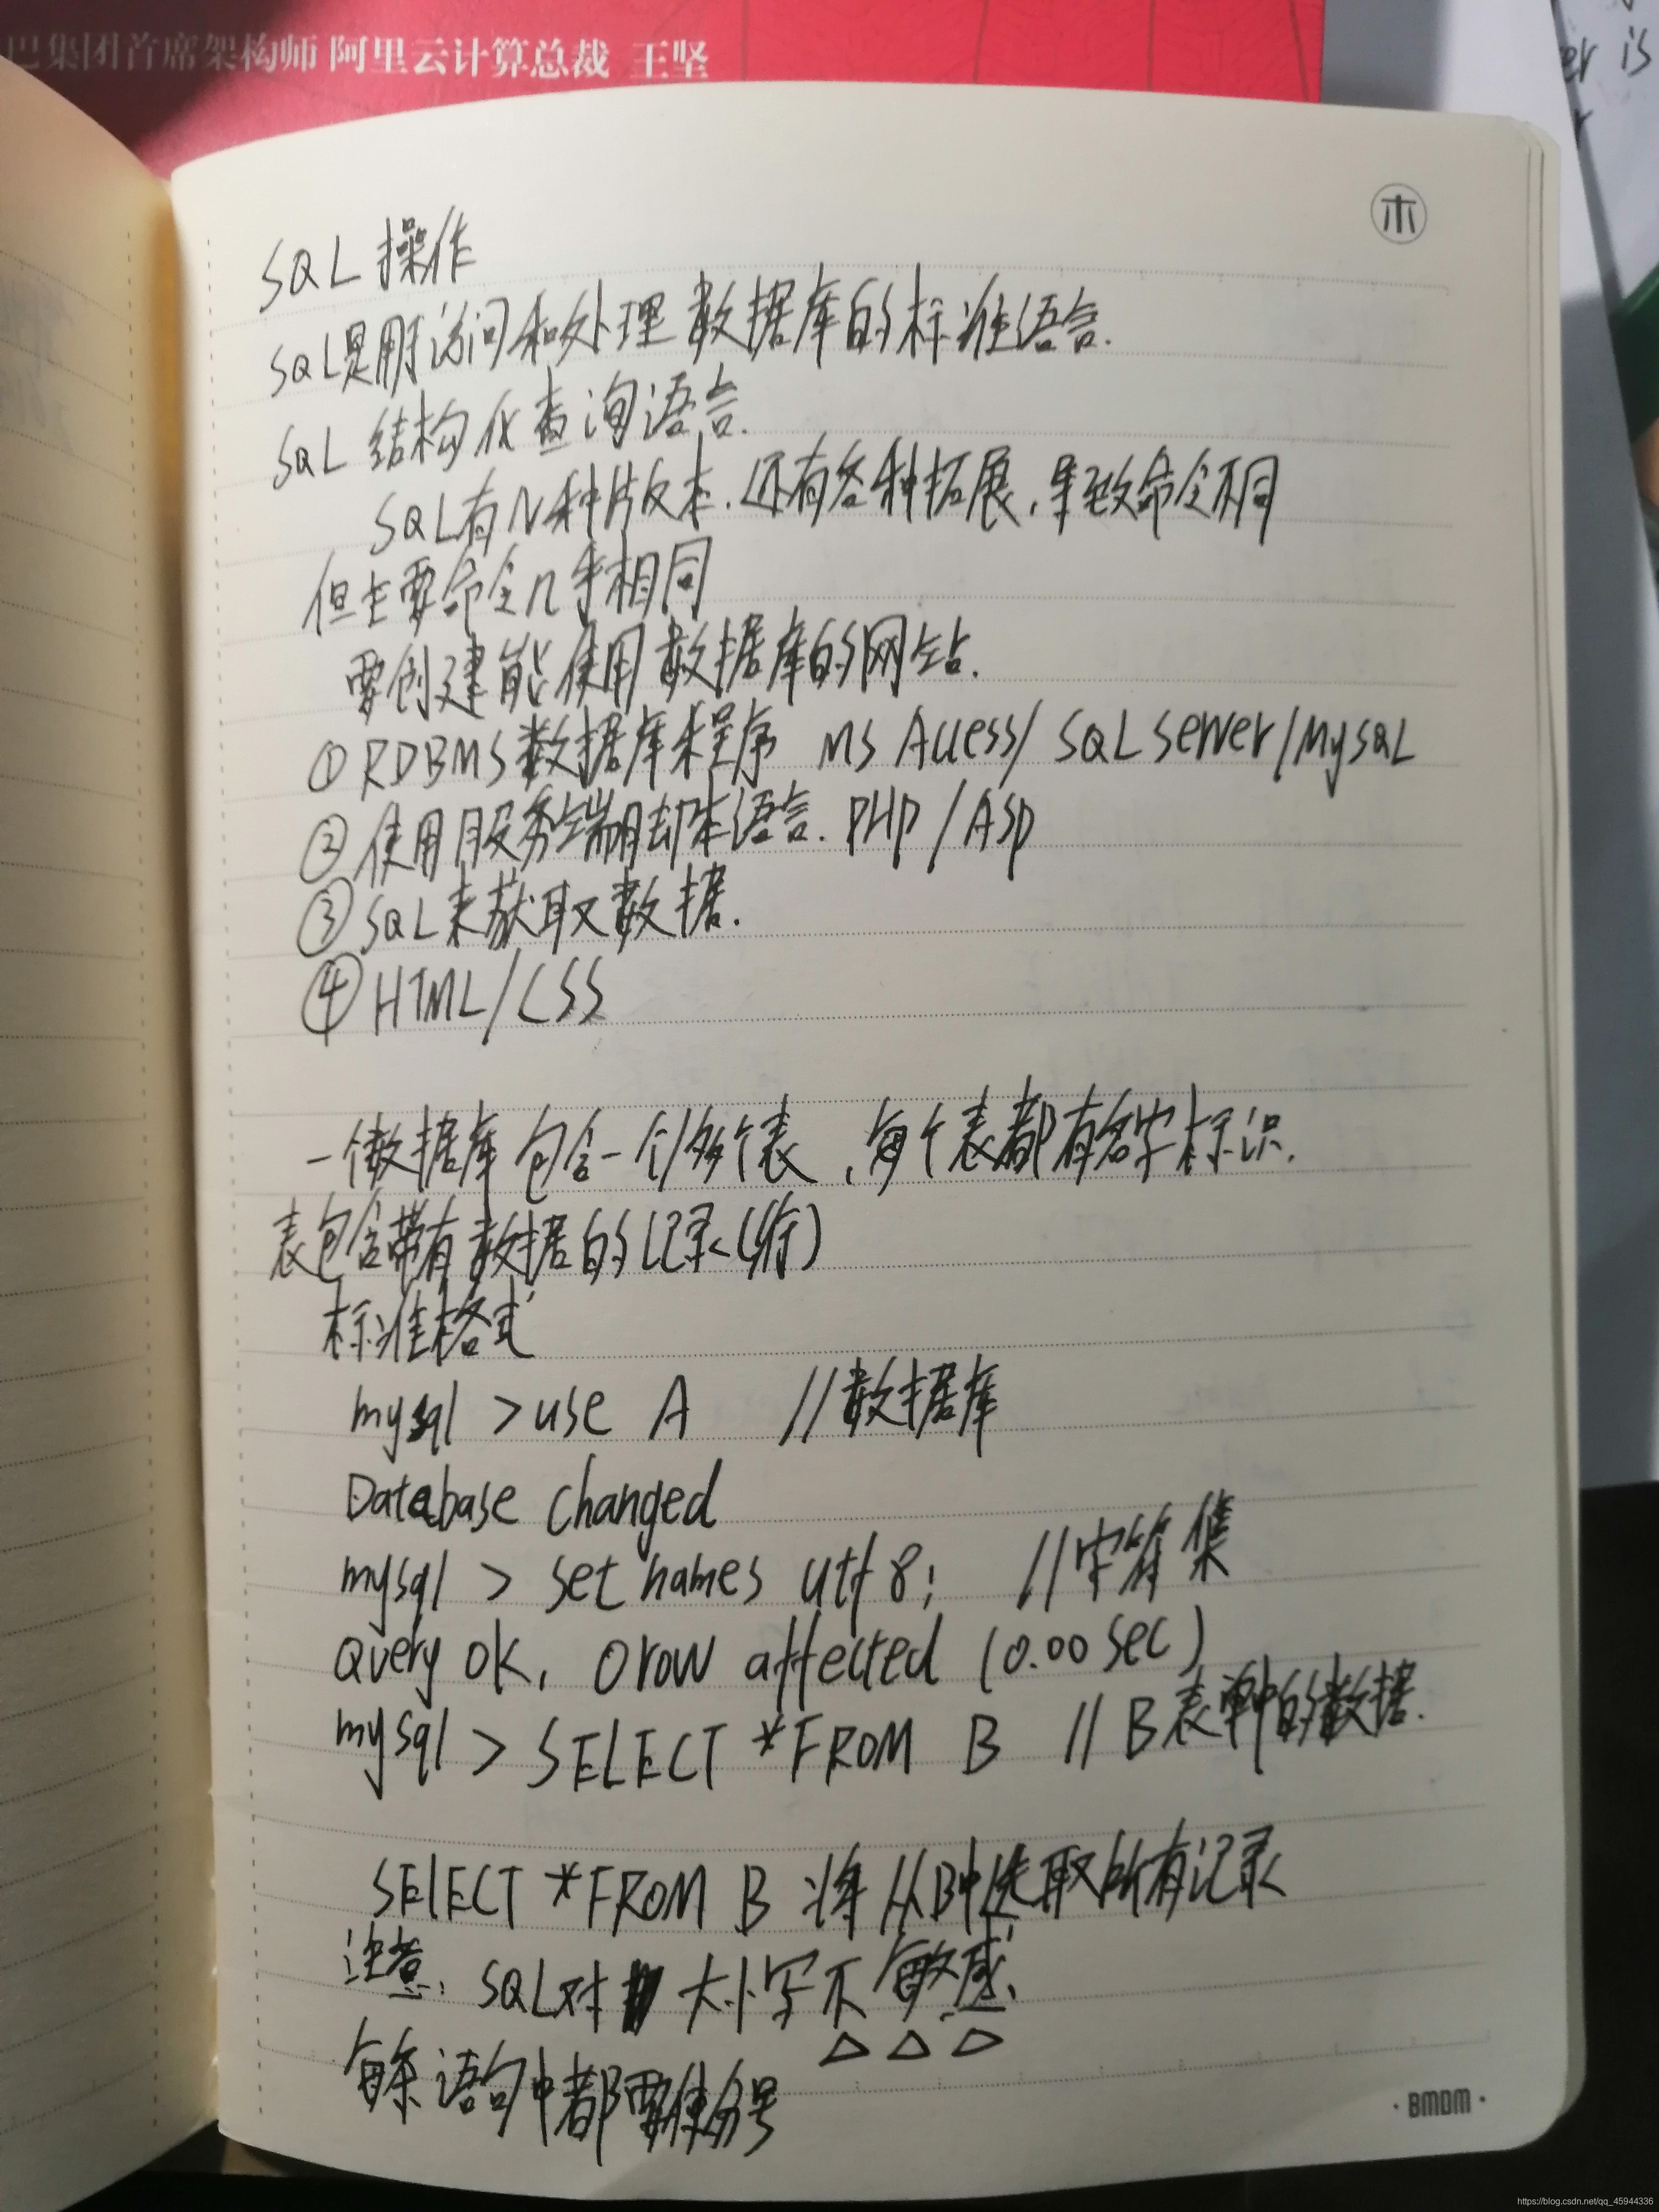 巴集团首席架构师 阿里云计算总裁 王坚
er is
木
SQL 操作
SQL是用于访问和处理数据库的标准语言.
SQL 结构化查询语言.
SQL有N种片版本.还有各种拓展,导致命令不同
但主要命令几乎相同
要创建能使用数据库的网站.
① RDBMS数据库程序 MS Access/ SQL Server/MySQL
② 使用服务端脚本语言. PHP / ASP
③ SQL来获取数据.
④ HTML/CSS
一个数据库包含一个/多个表,每个表都有名字标识.
表包含带有数据的记录(行)
标准格式
mysql >use A //数据库
Database changed
mysql > set names utf8; //字符集
Query OK, 0 row affected (0.00 sec)
mysql > SELECT *FROM B // B表单中的数据.
SELECT *FROM B 将从B中选取所有记录
注意, SQL对大小写不敏感.
△ △ △
每条语句中都要使分号
· BMDM ·
https://blog.csdn.net/qq_45944336